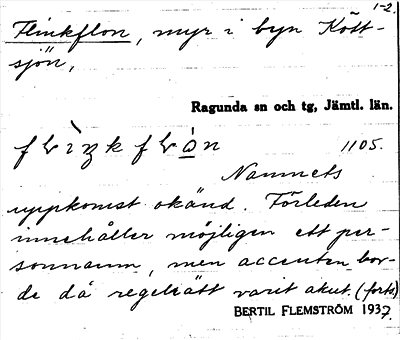 1-2.
Flinkflon, myr i byn Kött-
sjön,
Ragunda sn och tg, Jämtl. län.
1105.
Namnets
uppkomst okänd. Förleden
innehåller möjligen ett per-
sonnamn, men accenten bor-
de då regelrätt varit akut. (forts)
BERTIL FLEMSTRÖM 1937.